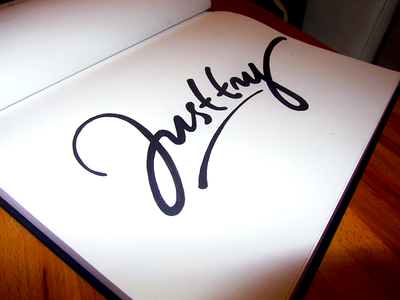 Just try